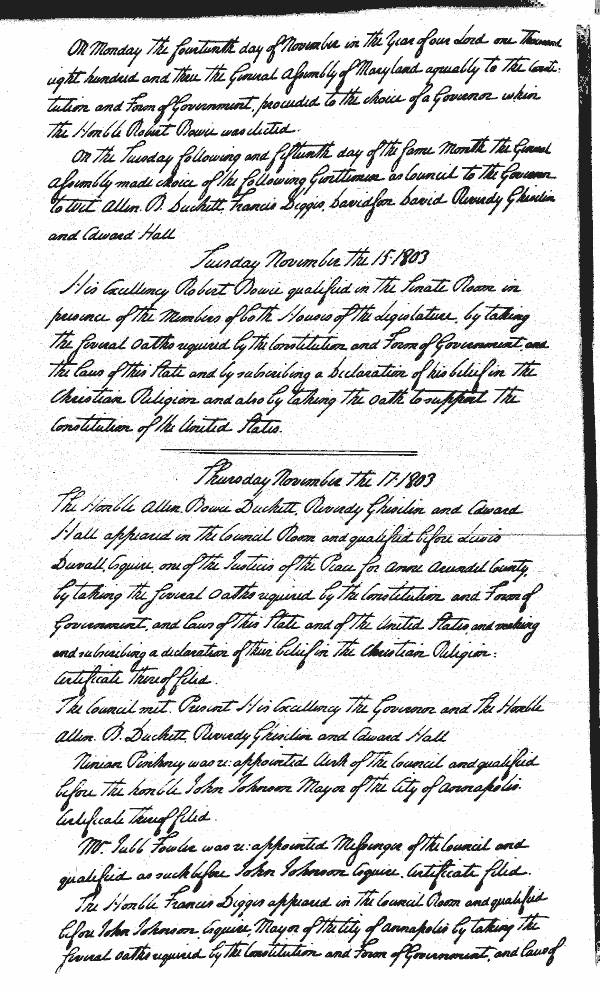 On Monday the fourteenth day of November in the Year of our Lord one thousand
eight hundred and three the General Assembly of Maryland agreeably to the Consti:
tution and Form of Government, proceeded to the choice of a Governor when
the Honble Robert Bowie was elected.
On the Tuesday following and fifteenth day of the same Month the General
Assembly made choice of the following Gentlemen as Council to the Governor
to wit Allen B. Duckett, Francis Digges, Davidson David Reverdy Ghiselin
and Edward Hall
Tuesday November the 15 1803
His Excellency Robert Bowie qualified in the Senate Room in
presence of the Members of both Houses of the Legislature, by taking
the several oaths required by the Constitution and Form of Government and
the Laws of this State and by subscribing a Declaration of his belief in the
Christian Religion and also by taking the oath to support the
Constitution of the United States.
Thursday November the 17 1803
The Honble Allen Bowie Duckett, Reverdy Ghiselin and Edward
Hall appeared in the Council Room and qualified before Lewis
Duvall, Esquire, one of the Justices of the Peace for Anne Arundel County,
by taking the several oaths required by the Constitution and Form of
Government, and Laws of this State and of the United States and making
and subscribing a declaration of their belief in the Christian Religion:
Certificate thereof filed.
The Council met Present His Excellency the Governor and The Honble
Allen. B. Duckett, Reverdy Ghiselin and Edward Hall
Ninian Pinkney was re: appointed Clerk of the Council and qualified
before the honble John Johnson Mayor of the City of Annapolis.
Certificate thereof filed.
Mr. Jubb Fowler was re: appointed Messenger of the Council and
qualified as such before John Johnson Esquire. Certificate filed.
The Honble Francis Digges appeared in the Council Room and qualified
before John Johnson Esquire, Mayor of the City of Annapolis by taking the
several oaths required by the Constitution and Form of Government, and Laws of